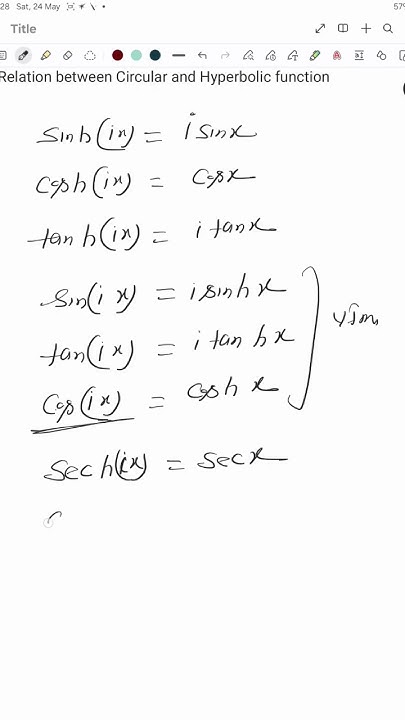 28 Sat, 24 May
57%
Title
Relation between Circular and Hyperbolic function
sinh(ix) = i sinx
cosh(ix) = cosx
tanh(ix) = i tanx
sin(ix) = i sinhx
tan(ix) = i tanhx
cos(ix) = coshx
sech(ix) = secx